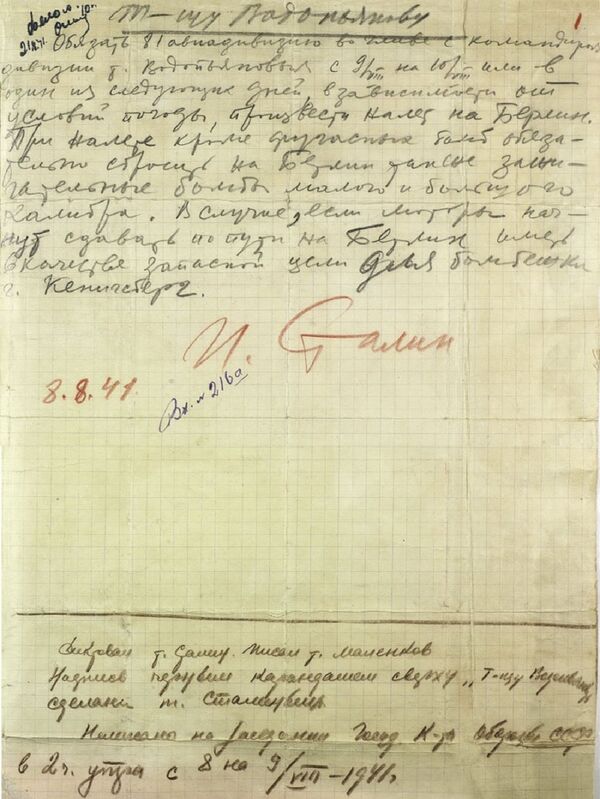 Т-щу Водопьянову
1
Обязать 81 авиадивизию во главе с командиром
дивизии т. Водопьяновым с 9/VIII на 10/VIII или в
один из следующих дней, в зависимости от
условий погоды, произвести налет на Берлин.
При налете кроме фугасных бомб обяза-
тельно сбросить на Берлин также зажи-
гательные бомбы малого и большого
калибра. В случае, если моторы нач-
нут сдавать по пути на Берлин иметь
в качестве запасной цели для бомбежки
г. Кенигсберг.
И. Сталин
8.8.41
Вх. № 216а
Диктовал т. Сталин. Писал т. Маленков
Надпись первым карандашем сверху „Т-щу Водопьянову
сделана т. Сталиным
Написано на заседании Госуд. К-та Обороны СССР
в 2 ч. утра с 8 на 9/VIII-1941г